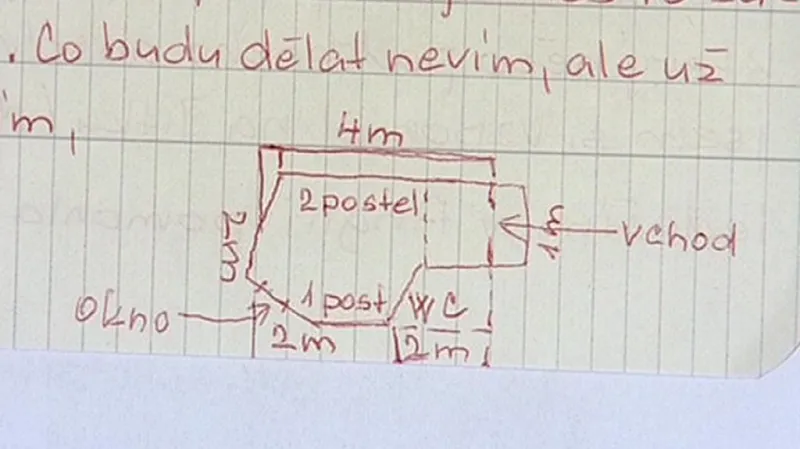 . Co budu dělat nevím, ale už
ím,
4m
2 postel
2m
1m
vchod
okno
1 post
WC
2m
2m